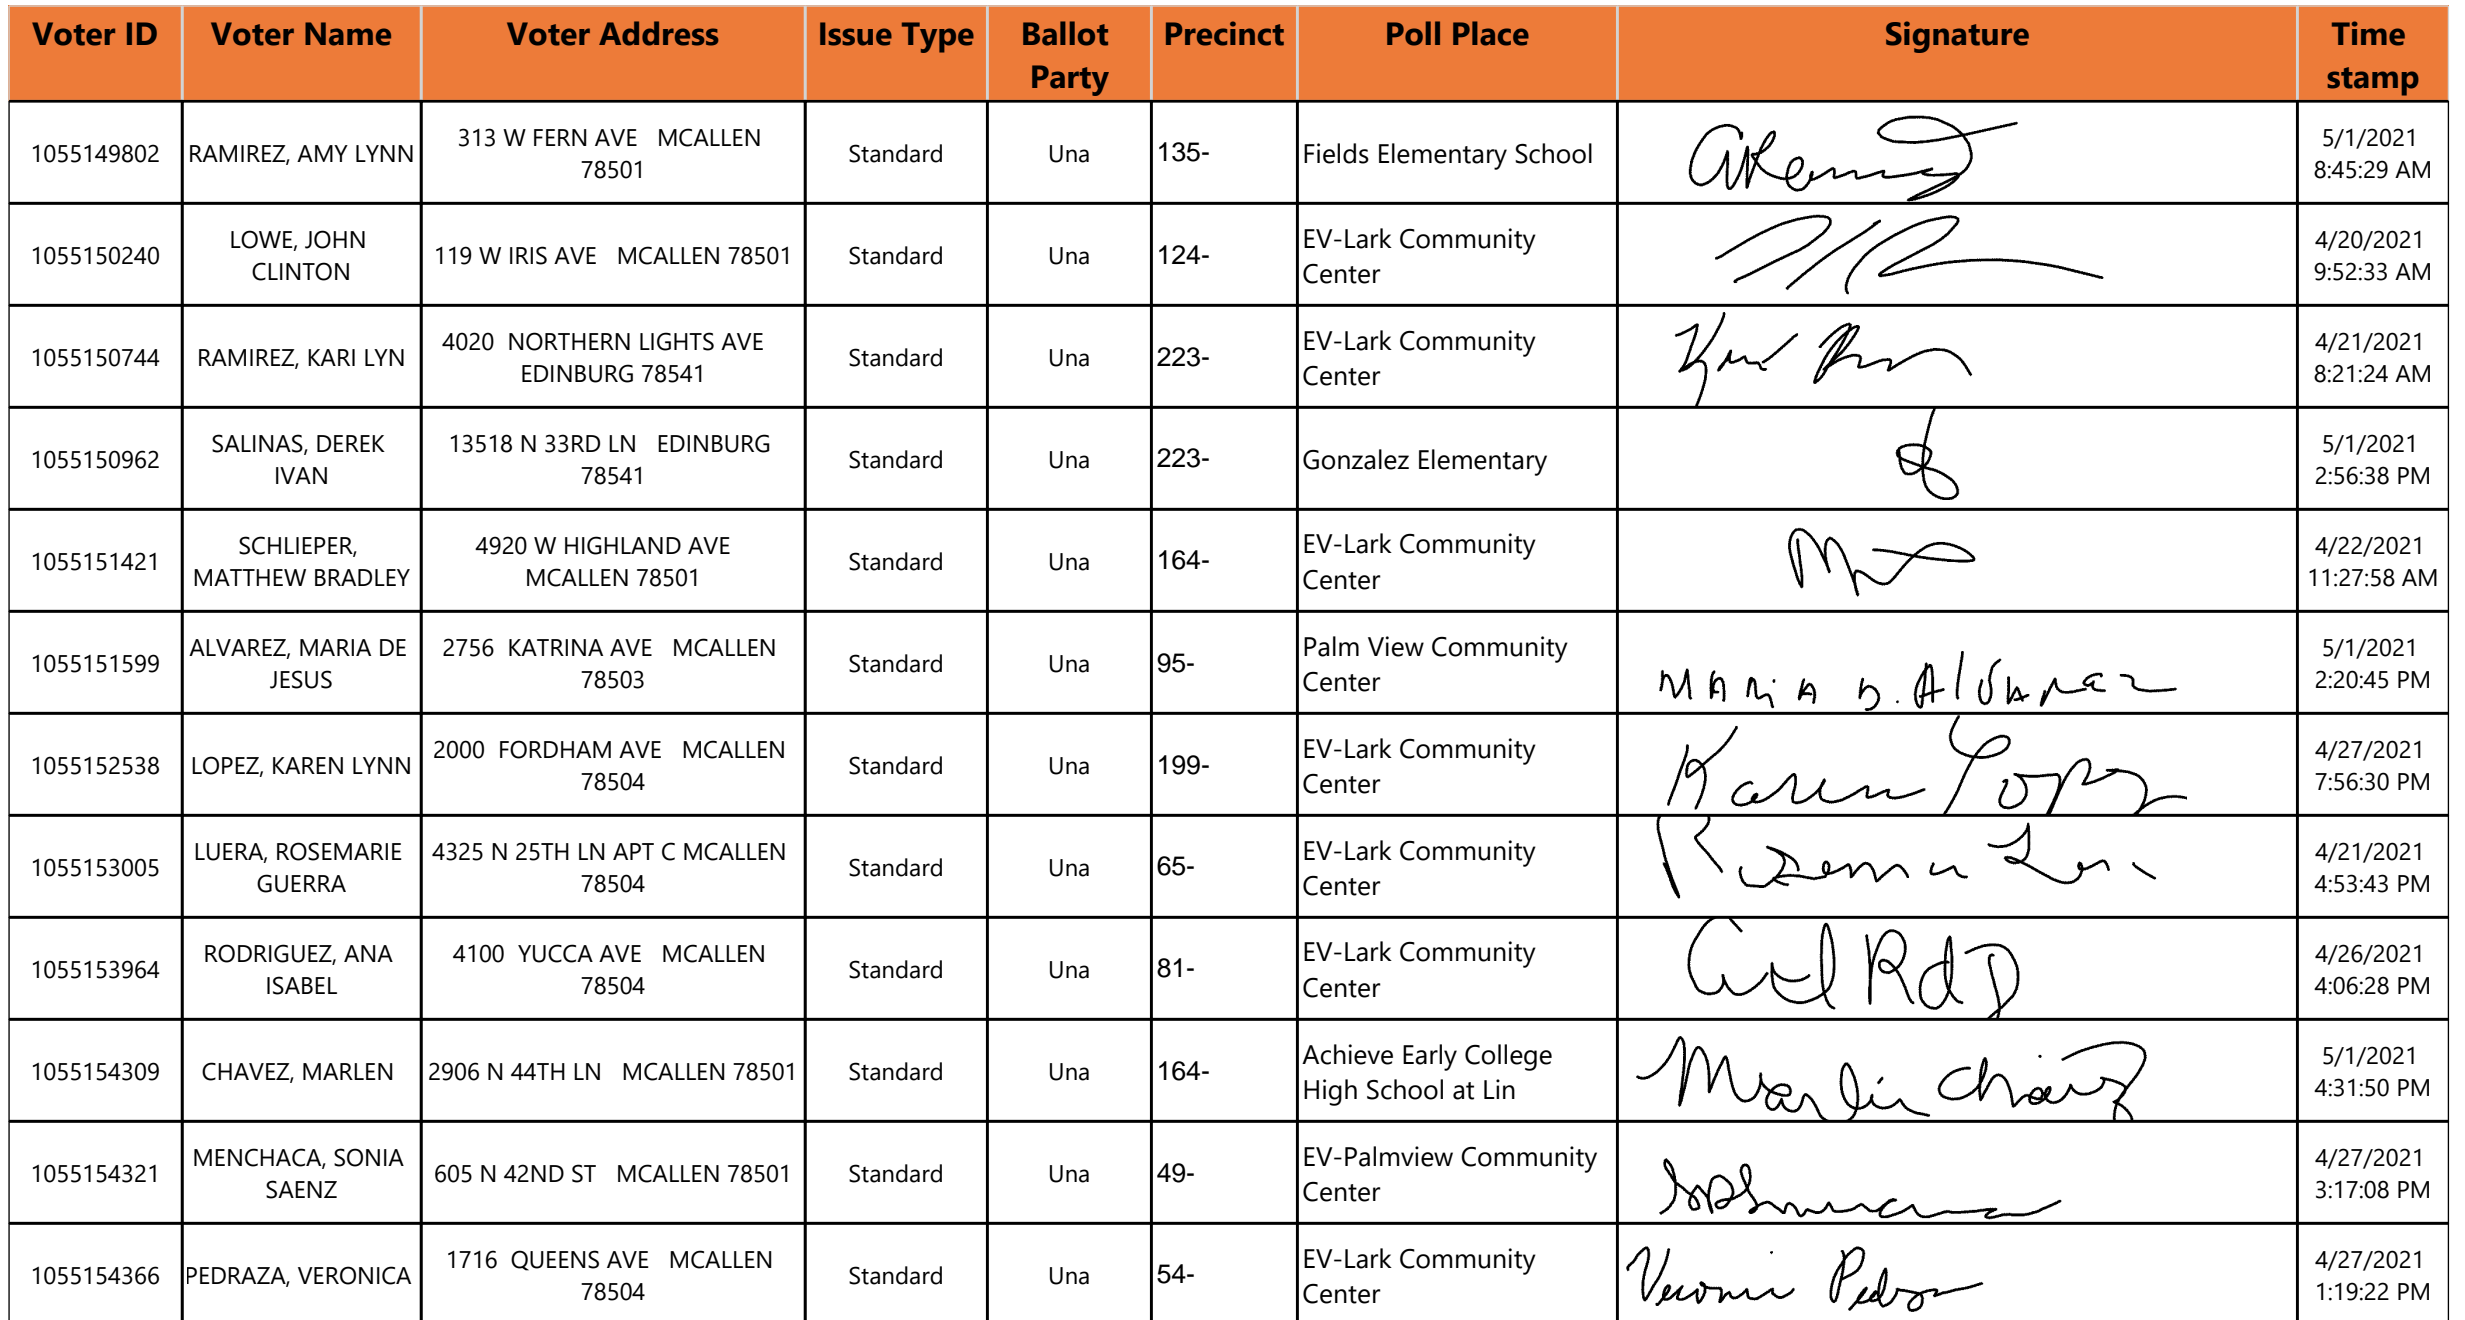 Voter ID Voter Name Voter Address Issue Type Ballot Party Precinct Poll Place Signature Time stamp
1055149802 RAMIREZ, AMY LYNN 313 W FERN AVE MCALLEN 78501 Standard Una 135- Fields Elementary School 5/1/2021 8:45:29 AM
1055150240 LOWE, JOHN CLINTON 119 W IRIS AVE MCALLEN 78501 Standard Una 124- EV-Lark Community Center 4/20/2021 9:52:33 AM
1055150744 RAMIREZ, KARI LYN 4020 NORTHERN LIGHTS AVE EDINBURG 78541 Standard Una 223- EV-Lark Community Center 4/21/2021 8:21:24 AM
1055150962 SALINAS, DEREK IVAN 13518 N 33RD LN EDINBURG 78541 Standard Una 223- Gonzalez Elementary 5/1/2021 2:56:38 PM
1055151421 SCHLIEPER, MATTHEW BRADLEY 4920 W HIGHLAND AVE MCALLEN 78501 Standard Una 164- EV-Lark Community Center 4/22/2021 11:27:58 AM
1055151599 ALVAREZ, MARIA DE JESUS 2756 KATRINA AVE MCALLEN 78503 Standard Una 95- Palm View Community Center MARIA D. AlVARez 5/1/2021 2:20:45 PM
1055152538 LOPEZ, KAREN LYNN 2000 FORDHAM AVE MCALLEN 78504 Standard Una 199- EV-Lark Community Center Karen Lopez 4/27/2021 7:56:30 PM
1055153005 LUERA, ROSEMARIE GUERRA 4325 N 25TH LN APT C MCALLEN 78504 Standard Una 65- EV-Lark Community Center 4/21/2021 4:53:43 PM
1055153964 RODRIGUEZ, ANA ISABEL 4100 YUCCA AVE MCALLEN 78504 Standard Una 81- EV-Lark Community Center 4/26/2021 4:06:28 PM
1055154309 CHAVEZ, MARLEN 2906 N 44TH LN MCALLEN 78501 Standard Una 164- Achieve Early College High School at Lin Marlen Chavez 5/1/2021 4:31:50 PM
1055154321 MENCHACA, SONIA SAENZ 605 N 42ND ST MCALLEN 78501 Standard Una 49- EV-Palmview Community Center 4/27/2021 3:17:08 PM
1055154366 PEDRAZA, VERONICA 1716 QUEENS AVE MCALLEN 78504 Standard Una 54- EV-Lark Community Center 4/27/2021 1:19:22 PM